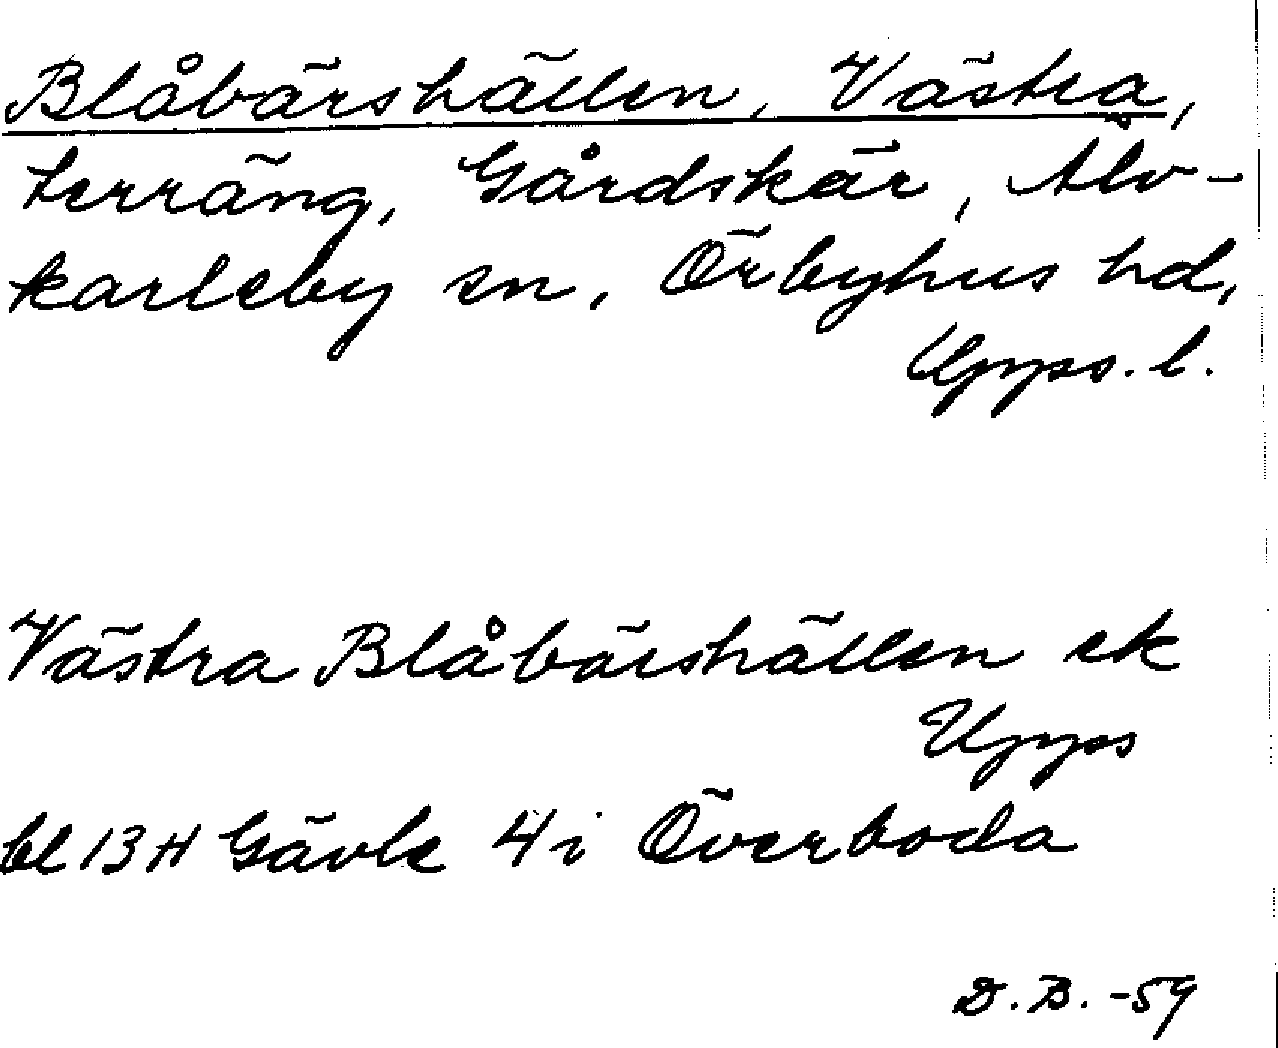 Blåbärshällen, Västra,
terräng, Gårdskär, Älv-
karleby sn, Örbyhus hd,
Upps. l.
Västra Blåbärshällen ek
Upps
bl 13H Gävle 4i Överboda
D.B. -59